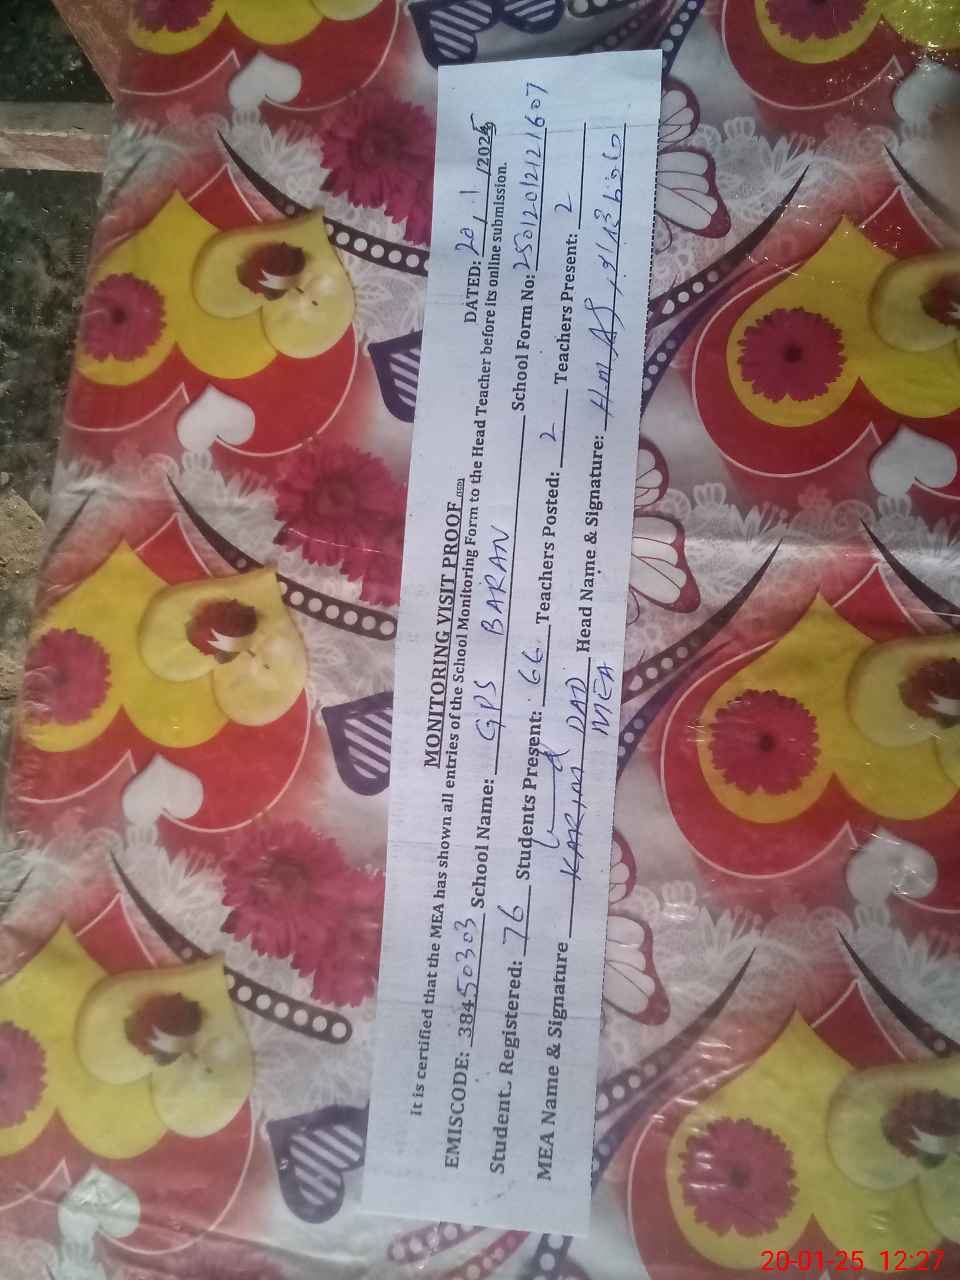 MONITORING VISIT PROOF
DATED: 20/1/2025
It is certified that the MEA has shown all entries of the School Monitoring Form to the Head Teacher before its online submission.
EMISCODE: 38450303 School Name: GPS BARAN School Form No: 250120121121607
Student Registered: 76 Students Present: 66 Teachers Posted: 2 Teachers Present: 2
MEA Name & Signature KARIM DAD Head Name & Signature:
MEA
20-01-25 12:27